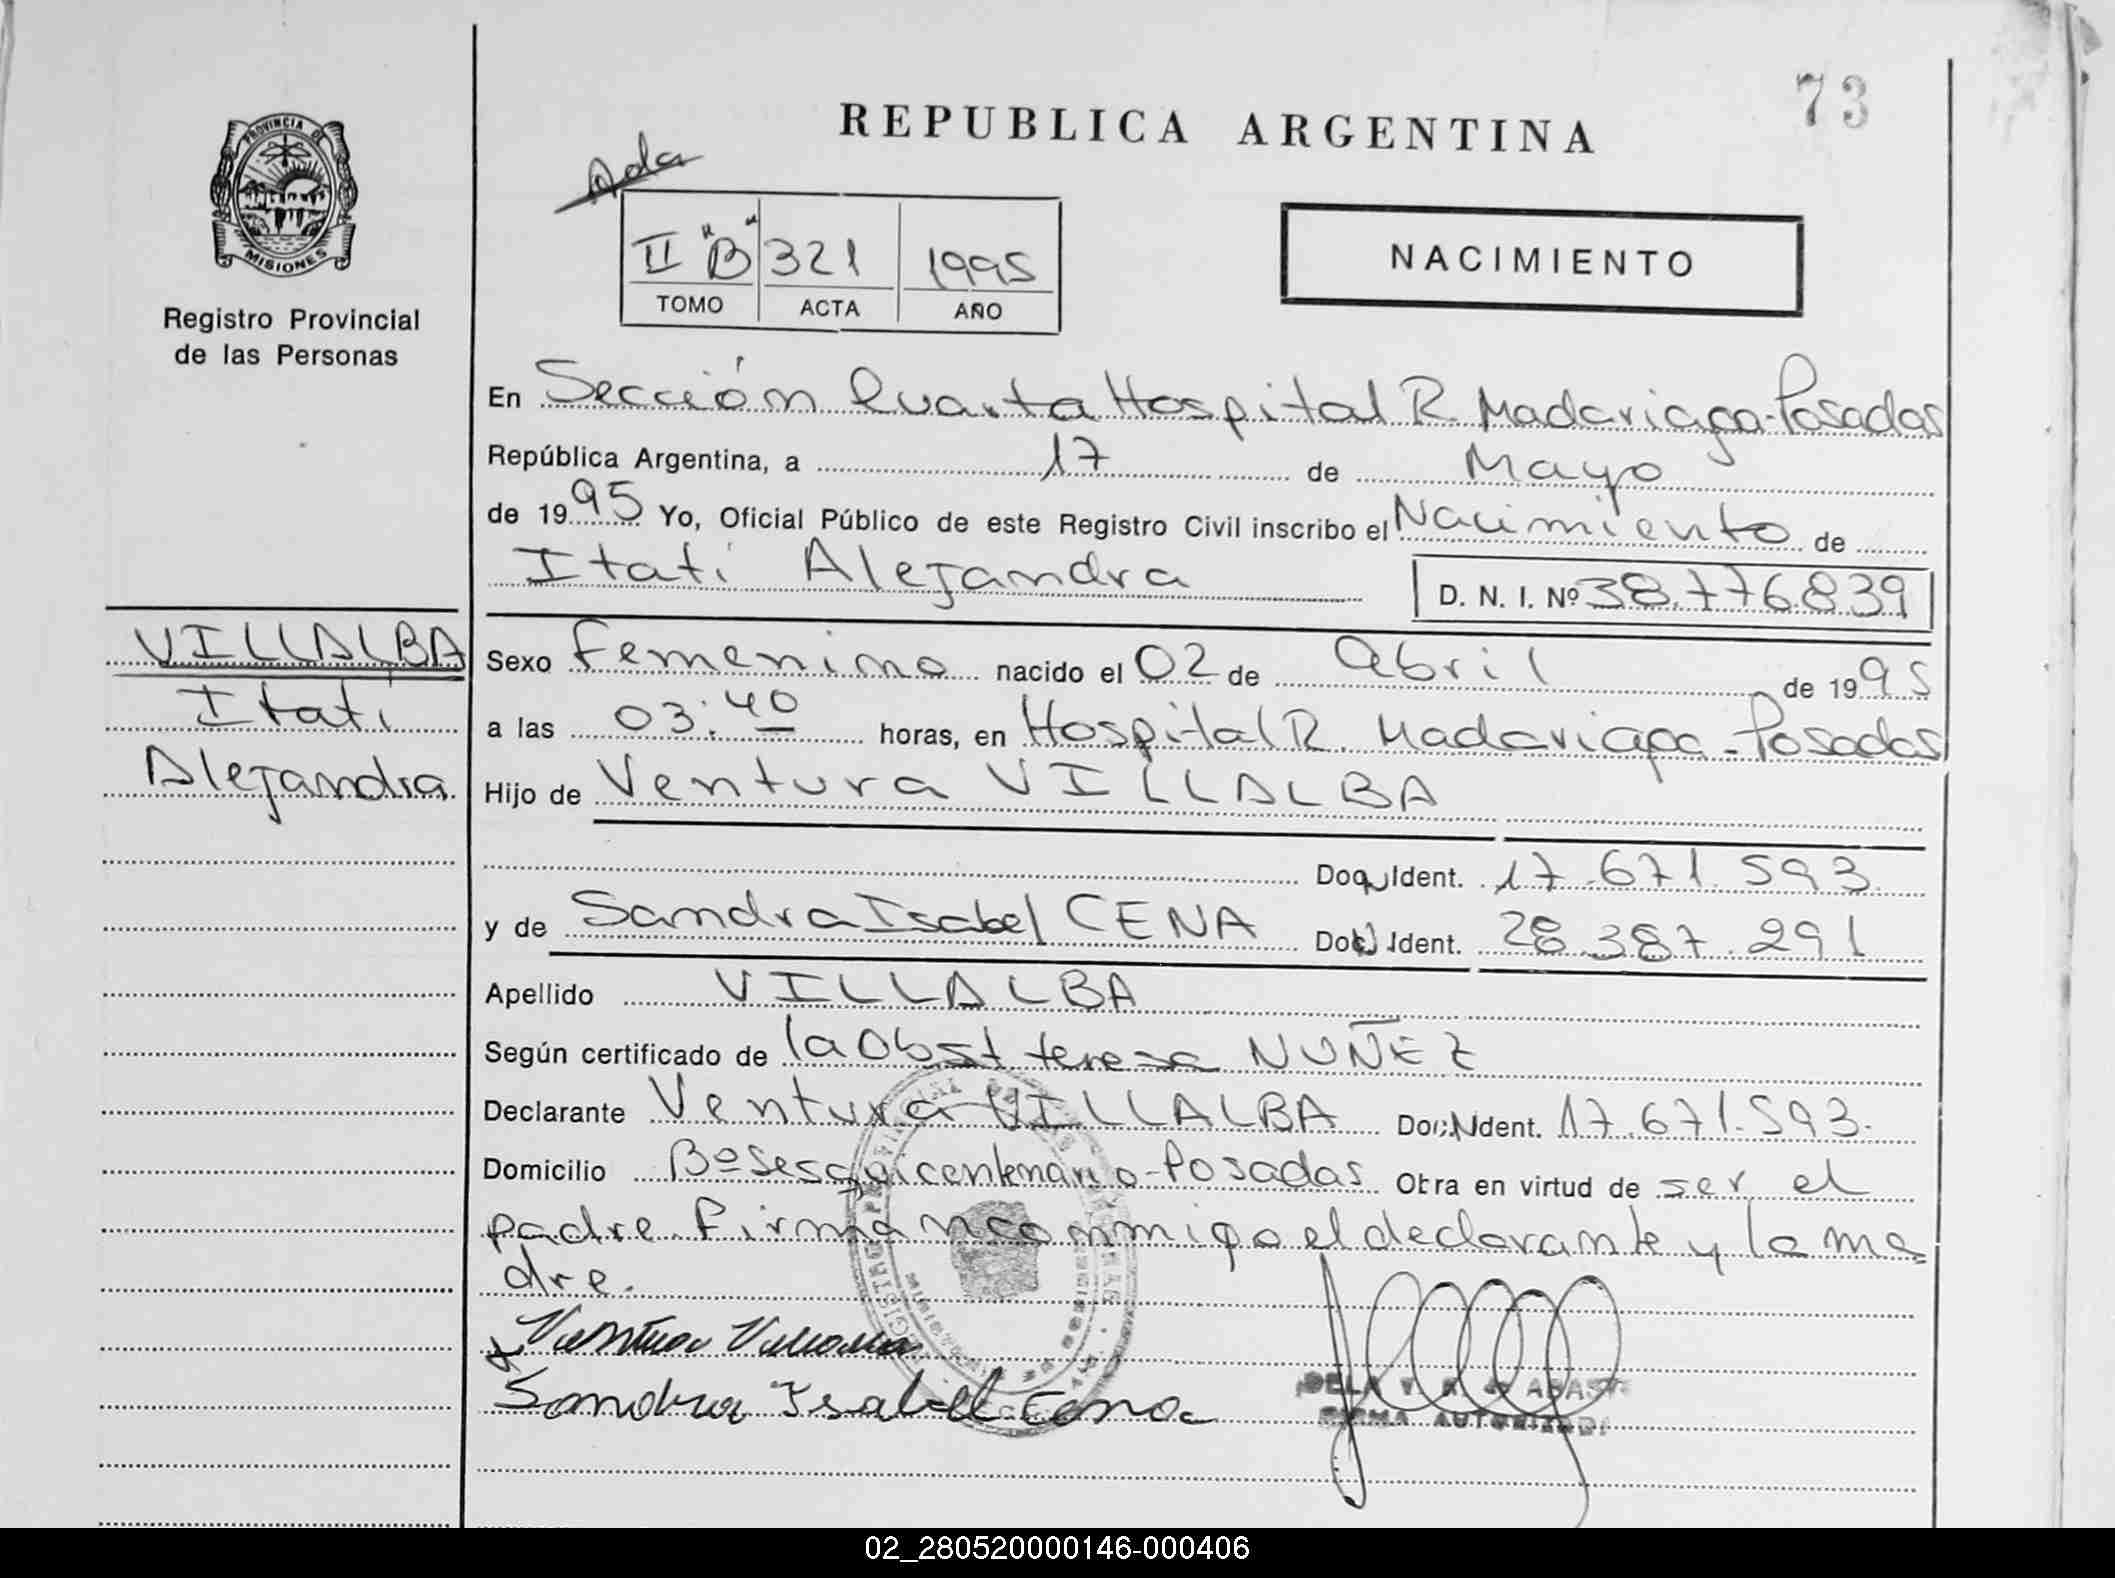 73
REPUBLICA ARGENTINA
Ada
PROVINCIA DE
MISIONES
II "B" 321 1995
TOMO ACTA AÑO
NACIMIENTO
Registro Provincial
de las Personas
En Sección Cuarta Hospital R. Madariaga-Posadas
República Argentina, a 17 de Mayo
de 1995 Yo, Oficial Público de este Registro Civil inscribo el Nacimiento de
Itatí Alejandra D. N. I. Nº 38.776.839
VILLALBA
Itatí
Alejandra
Sexo Femenino nacido el 02 de Abril de 1995
a las 03:40 horas, en Hospital R. Madariaga-Posadas
Hijo de Ventura VILLALBA
Doc. Ident. 17.671.593
y de Sandra Isabel CENA Doc. Ident. 28.387.291
Apellido VILLALBA
Según certificado de la Obst teresa NUÑEZ
Declarante Ventura VILLALBA Doc. Ident. 17.671.593.
Domicilio Bº Sesquicentenario-Posadas Obra en virtud de ser el
padre. Firman conmigo el declarante y la ma
dre.
Ventura Villalba
Sandra Isabel Cena
FIRMA AUTORIZADA
02_280520000146-000406